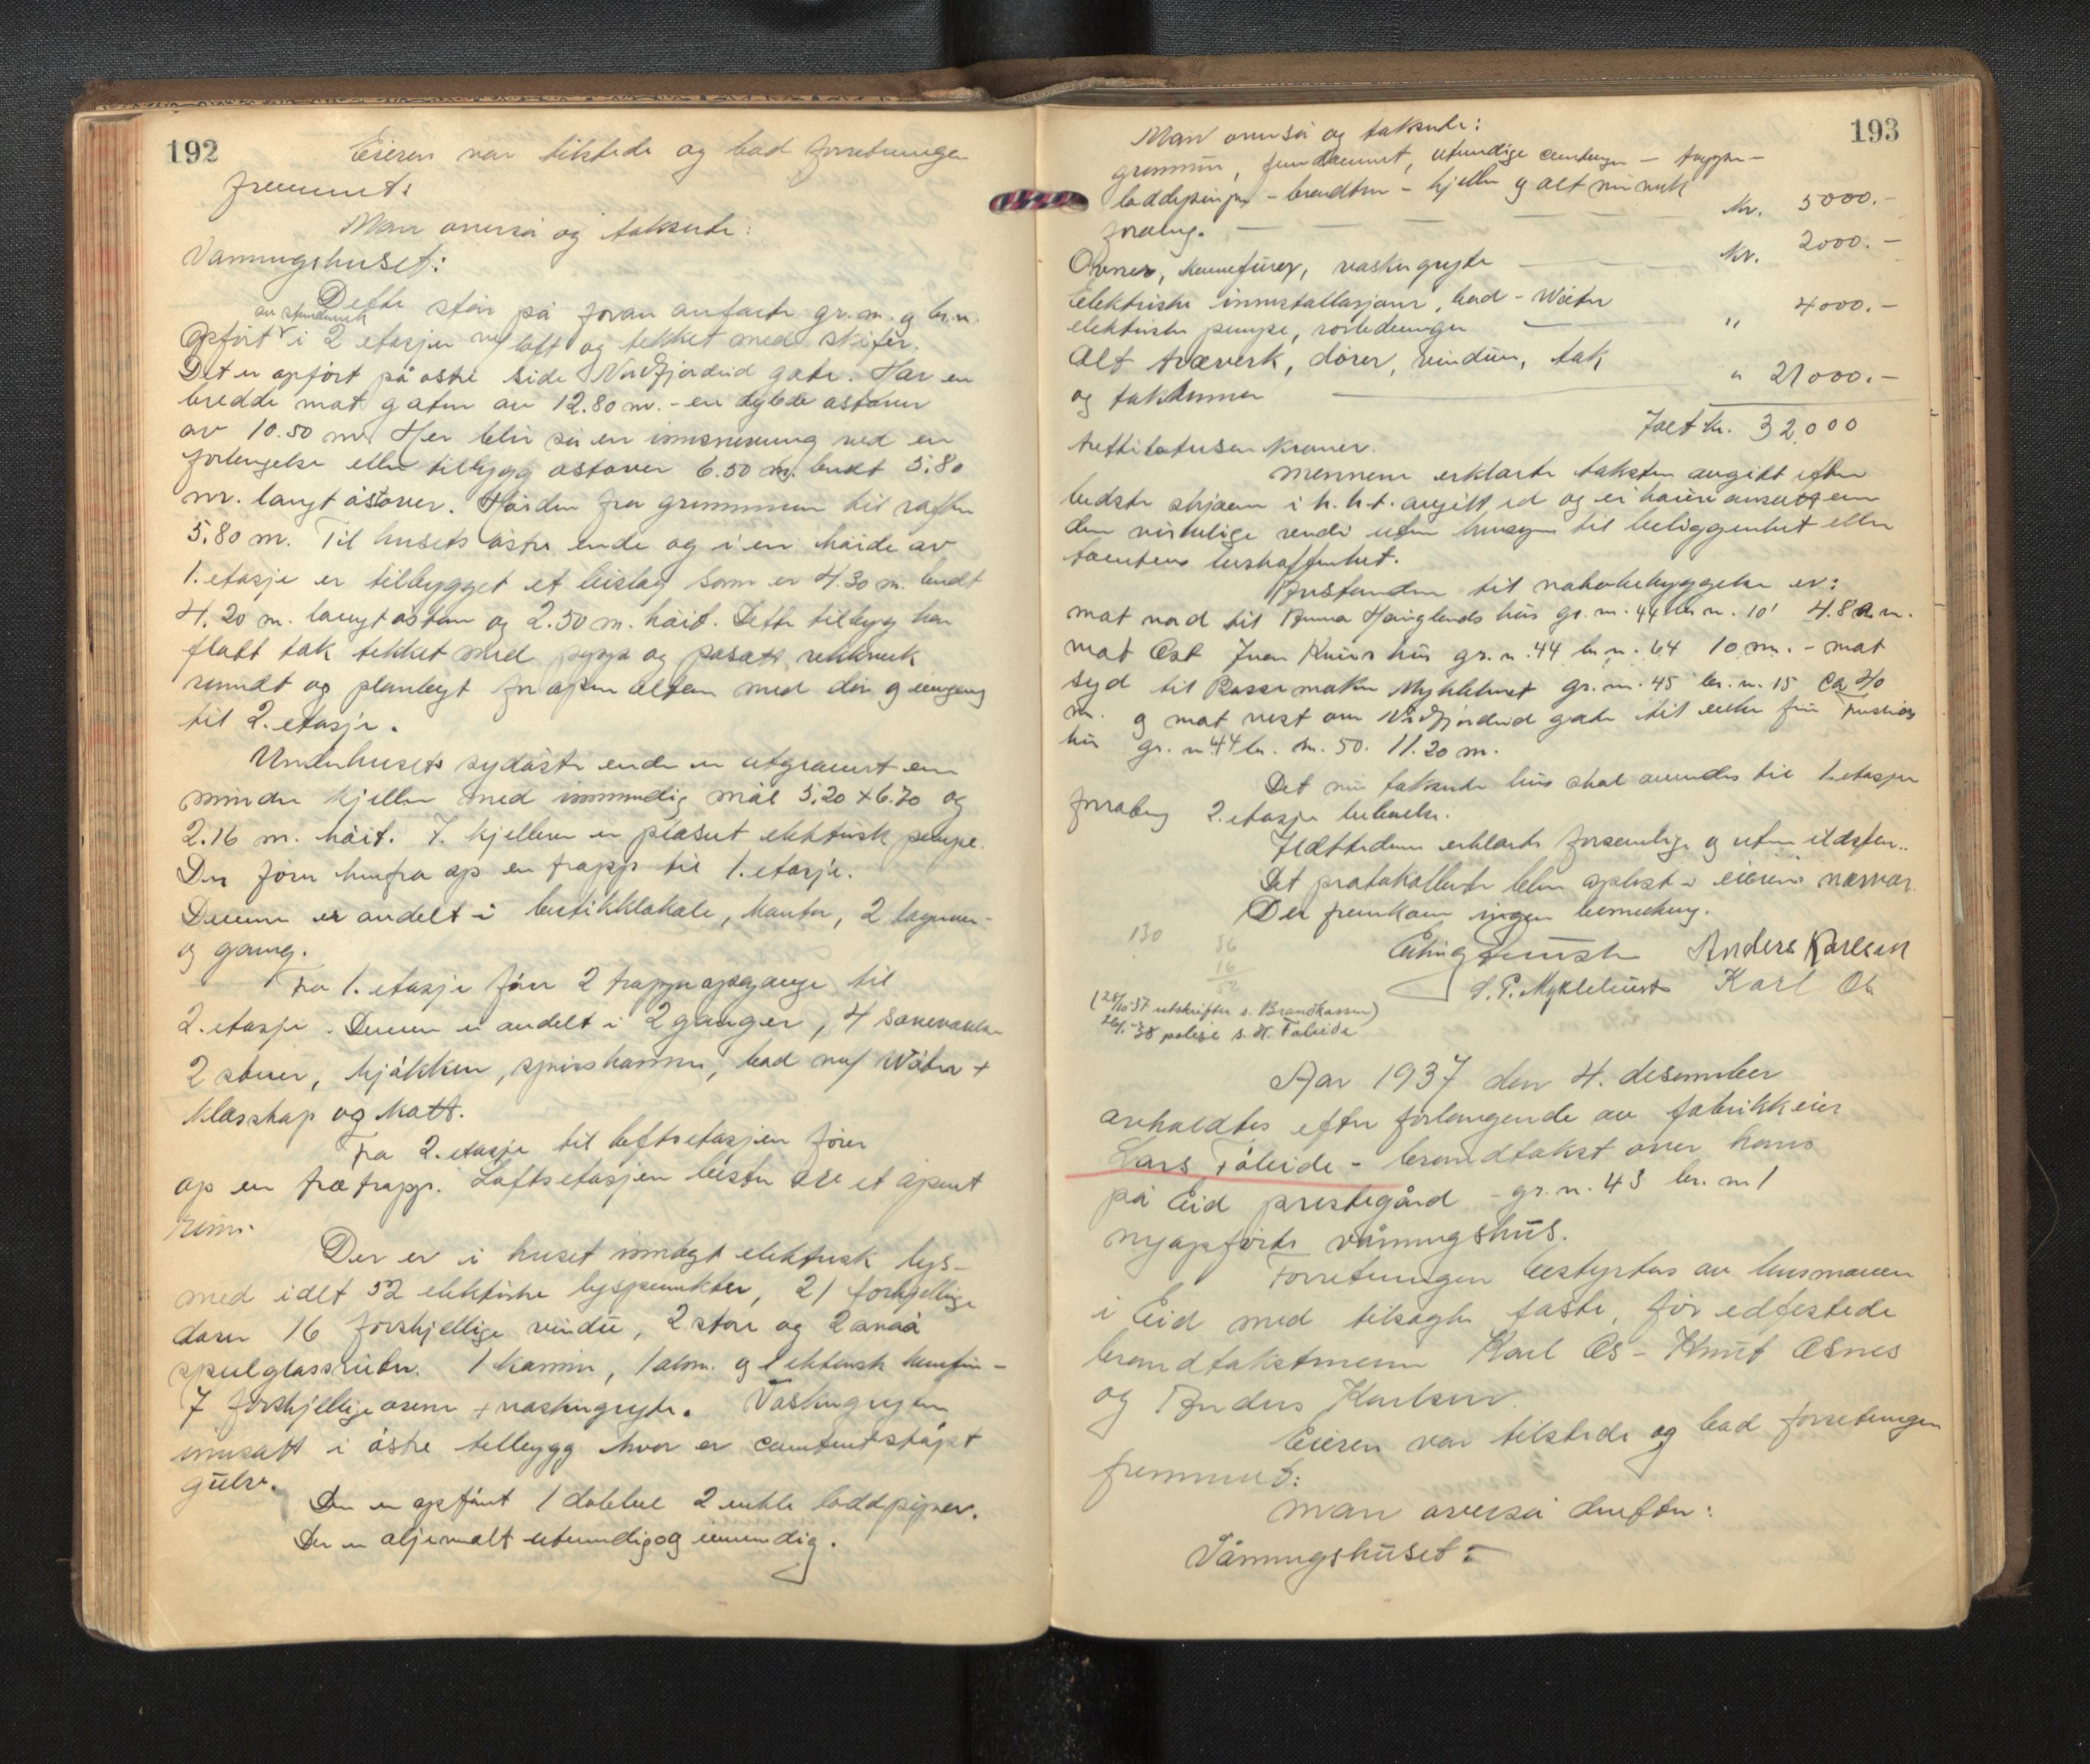 192
Eieren var tilstede og bad forretningen
fremmet:
Man overså og takserte:
Vaaningshuset:
Dette står på foran anførte gr. m. g br. n.
av stenderverk
Opført i 2 etasjer m/ loft og tekket med skifer.
Det er opført på østre side Nordfjordeid gate. Har en
bredde mot gaten av 12.80 m. - en dybde østover
av 10.50 m. Her blir så en innsnevring ved en
forlengelse eller tilbygg østover 6.50 m. bredt 5.80
m. langt østover. Høiden fra grunnmur til raften
5.80 m. Til husets østre ende og i en høide av
1. etasje er tilbygget et bislag som er 4.30 m. bredt
4.20 m. langt østover og 2.50 m. høit. Dette tilbygg har
flatt tak tekket med papp og påsatt rekkverk
rundt og planlagt for åpen altan med dør g inngang
til 2. etasje.
Under husets sydøstre ende er utgravet en
mindre kjeller med innvendig mål 5.20 x 6.70 og
2.16 m. høit. I kjelleren er plasert elektrisk pumpe.
Der fører herfra op en trapp til 1. etasje.
Denne er avdelt i butikklokale, kontor, 2 lagerrum
og gang.
Fra 1. etasje fører 2 trappeopganger til
2. etasje. Denne er avdelt i 2 ganger, 4 soveværelser
2 stuer, kjøkken, spiskammer, bad m/ Water +
klæsskap og kott.
Fra 2. etasje til loftsetasjen fører
op en fra trapp. Loftsetasjen består av et åpent
rum.
Der er i huset innlagt elektrisk lys-
med idet 52 elektriske lyspunkter, 21 forskjellige
dører 16 forskjellige vinduer, 2 store og 2 små
speilglassruter. 1 kamin, 1 alm. og 1 elektrisk komfyr -
7 forskjellige ovner + vaskegryte. Vaskegryten
innsatt i østre tilbygg hvor er cementstøpt
gulv.
Der er opført 1 dobbel 2 enkle loddpiper.
Der er oljemalt utvendig og innvendig.
193
Man overså og takserte:
grunnmur, fundament, utvendige cementtrapper -
loddepiper - brandmur - kjeller g alt murverk
forøvrig. Kr. 5000.-
Ovner, komfyrer, vaskegryte Kr. 2000.-
Elektriske innstallasjoner, bad - Water
elektriske pumpe, rørledninger " 4000.-
Alt treverk, dører, vinduer, tak
og takrenner " 21000.-
Ialt kr. 32,000
trettitotusen kroner.
Mennene erklærte taksten avgitt efter
bedste skjønn i h. h. t. avgitt ed og ei høiere ansatt enn
den virkelige verdi uten hensyn til beliggenhet eller
tomtens beskaffenhet.
Avstanden til nabobebyggelse er:
mot nord til Anna Hauglands hus gr. n. 44 br. n. 10' 4.80 m.
mot Øst Ivar hus gr. n. 44 br. n. 64 10 m. - mot
Syd til Myklebust gr. n. 45 br. n. 15 ca 40
m. g mot vest over Nordfjordeid gate til enke fru
hus gr. n 44 br. n. 50. 11.20 m.
Det nu takserte hus skal anvendes til 1. etasje
forretning 2. etasje beboelse.
Ildstedene erklærte forsvarlige g uten ildsfare.
Det protokollerte blev oplest i eierens nærvær.
Der fremkom ingen bemerkning.
130 36
16
52
Anders Karlsen
S. P. Myklebust Karl Os
(28/10-37 utskrifter s. Brandkassen)
26/1-38 polise s. H. Taleide
Aar 1937 den 4. desember
avholdtes efter forlangende av fabrikkeier
Lars Tåleide - brandtakst over hans
på Eid prestegård - gr. n. 43 br. n 1
nyopførte våningshus.
Forretningen bestyrtes av lensmannen
i Eid med tilsagte faste, før edfestede
brandtakstmenn Karl Os - Knut Osnes
og Anders Karlsen.
Eieren var tilstede og bad forretningen
fremmet:
Man overså derefter:
Våningshuset: